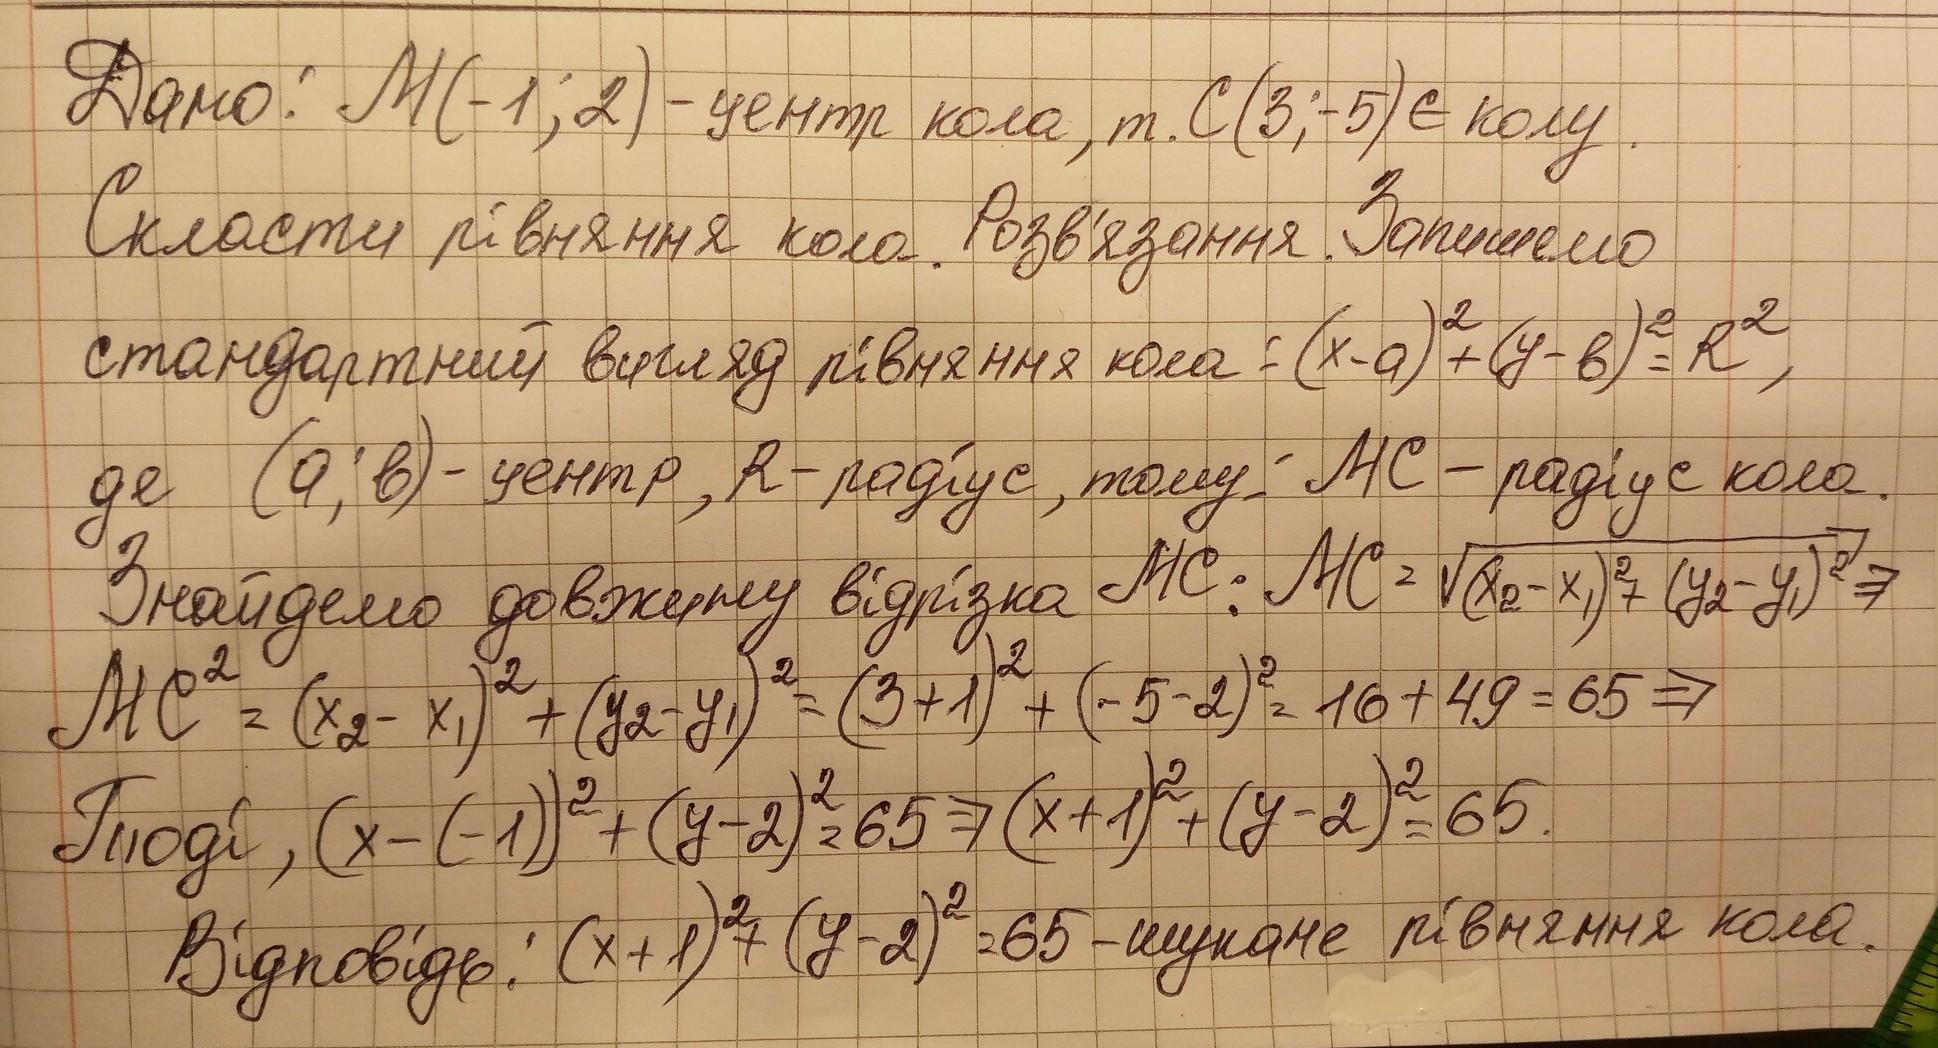 Дано: M(-1; 2) - центр кола, т. C(3; -5) є колу.
Скласти рівняння кола. Розв'язання. Запишемо
стандартний вигляд рівняння кола: (x-a)² + (y-b)² = R²,
де (a; b) - центр, R - радіус, тому: MC - радіус кола.
Знайдемо довжину відрізка MC: MC = √((x₂-x₁)² + (y₂-y₁)²) ⇒
MC² = (x₂ - x₁)² + (y₂-y₁)² = (3+1)² + (-5-2)² = 16 + 49 = 65 ⇒
Тоді, (x-(-1))² + (y-2)² = 65 ⇒ (x+1)² + (y-2)² = 65.
Відповідь: (x+1)² + (y-2)² = 65 - шукане рівняння кола.